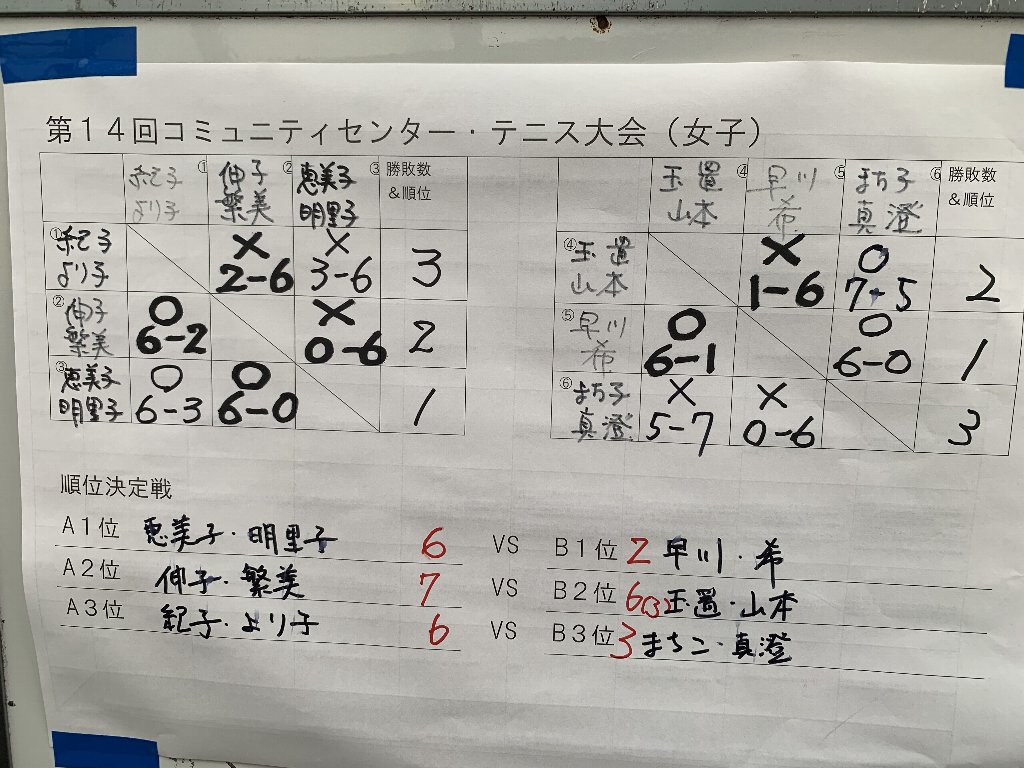 第１４回コミュニティセンター・テニス大会（女子）
① ② ③ 勝敗数
紀子 伸子 恵美子 &順位
より子 繁美 明里子
① 紀子 × × 3
より子 2-6 3-6
② 伸子 ○ × 2
繁美 6-2 0-6
③ 恵美子 ○ ○ 1
明里子 6-3 6-0
④ ⑤ ⑥ 勝敗数
玉置 早川 まち子 &順位
山本 希 真澄
④ 玉置 × ○ 2
山本 1-6 7-5
⑤ 早川 ○ ○ 1
希 6-1 6-0
⑥ まち子 × × 3
真澄 5-7 0-6
順位決定戦
Ａ１位 恵美子・明里子 6 VS Ｂ１位 2 早川・希
Ａ２位 伸子・繁美 7 VS Ｂ２位 6(3) 玉置・山本
Ａ３位 紀子・より子 6 VS Ｂ３位 3 まちこ・真澄